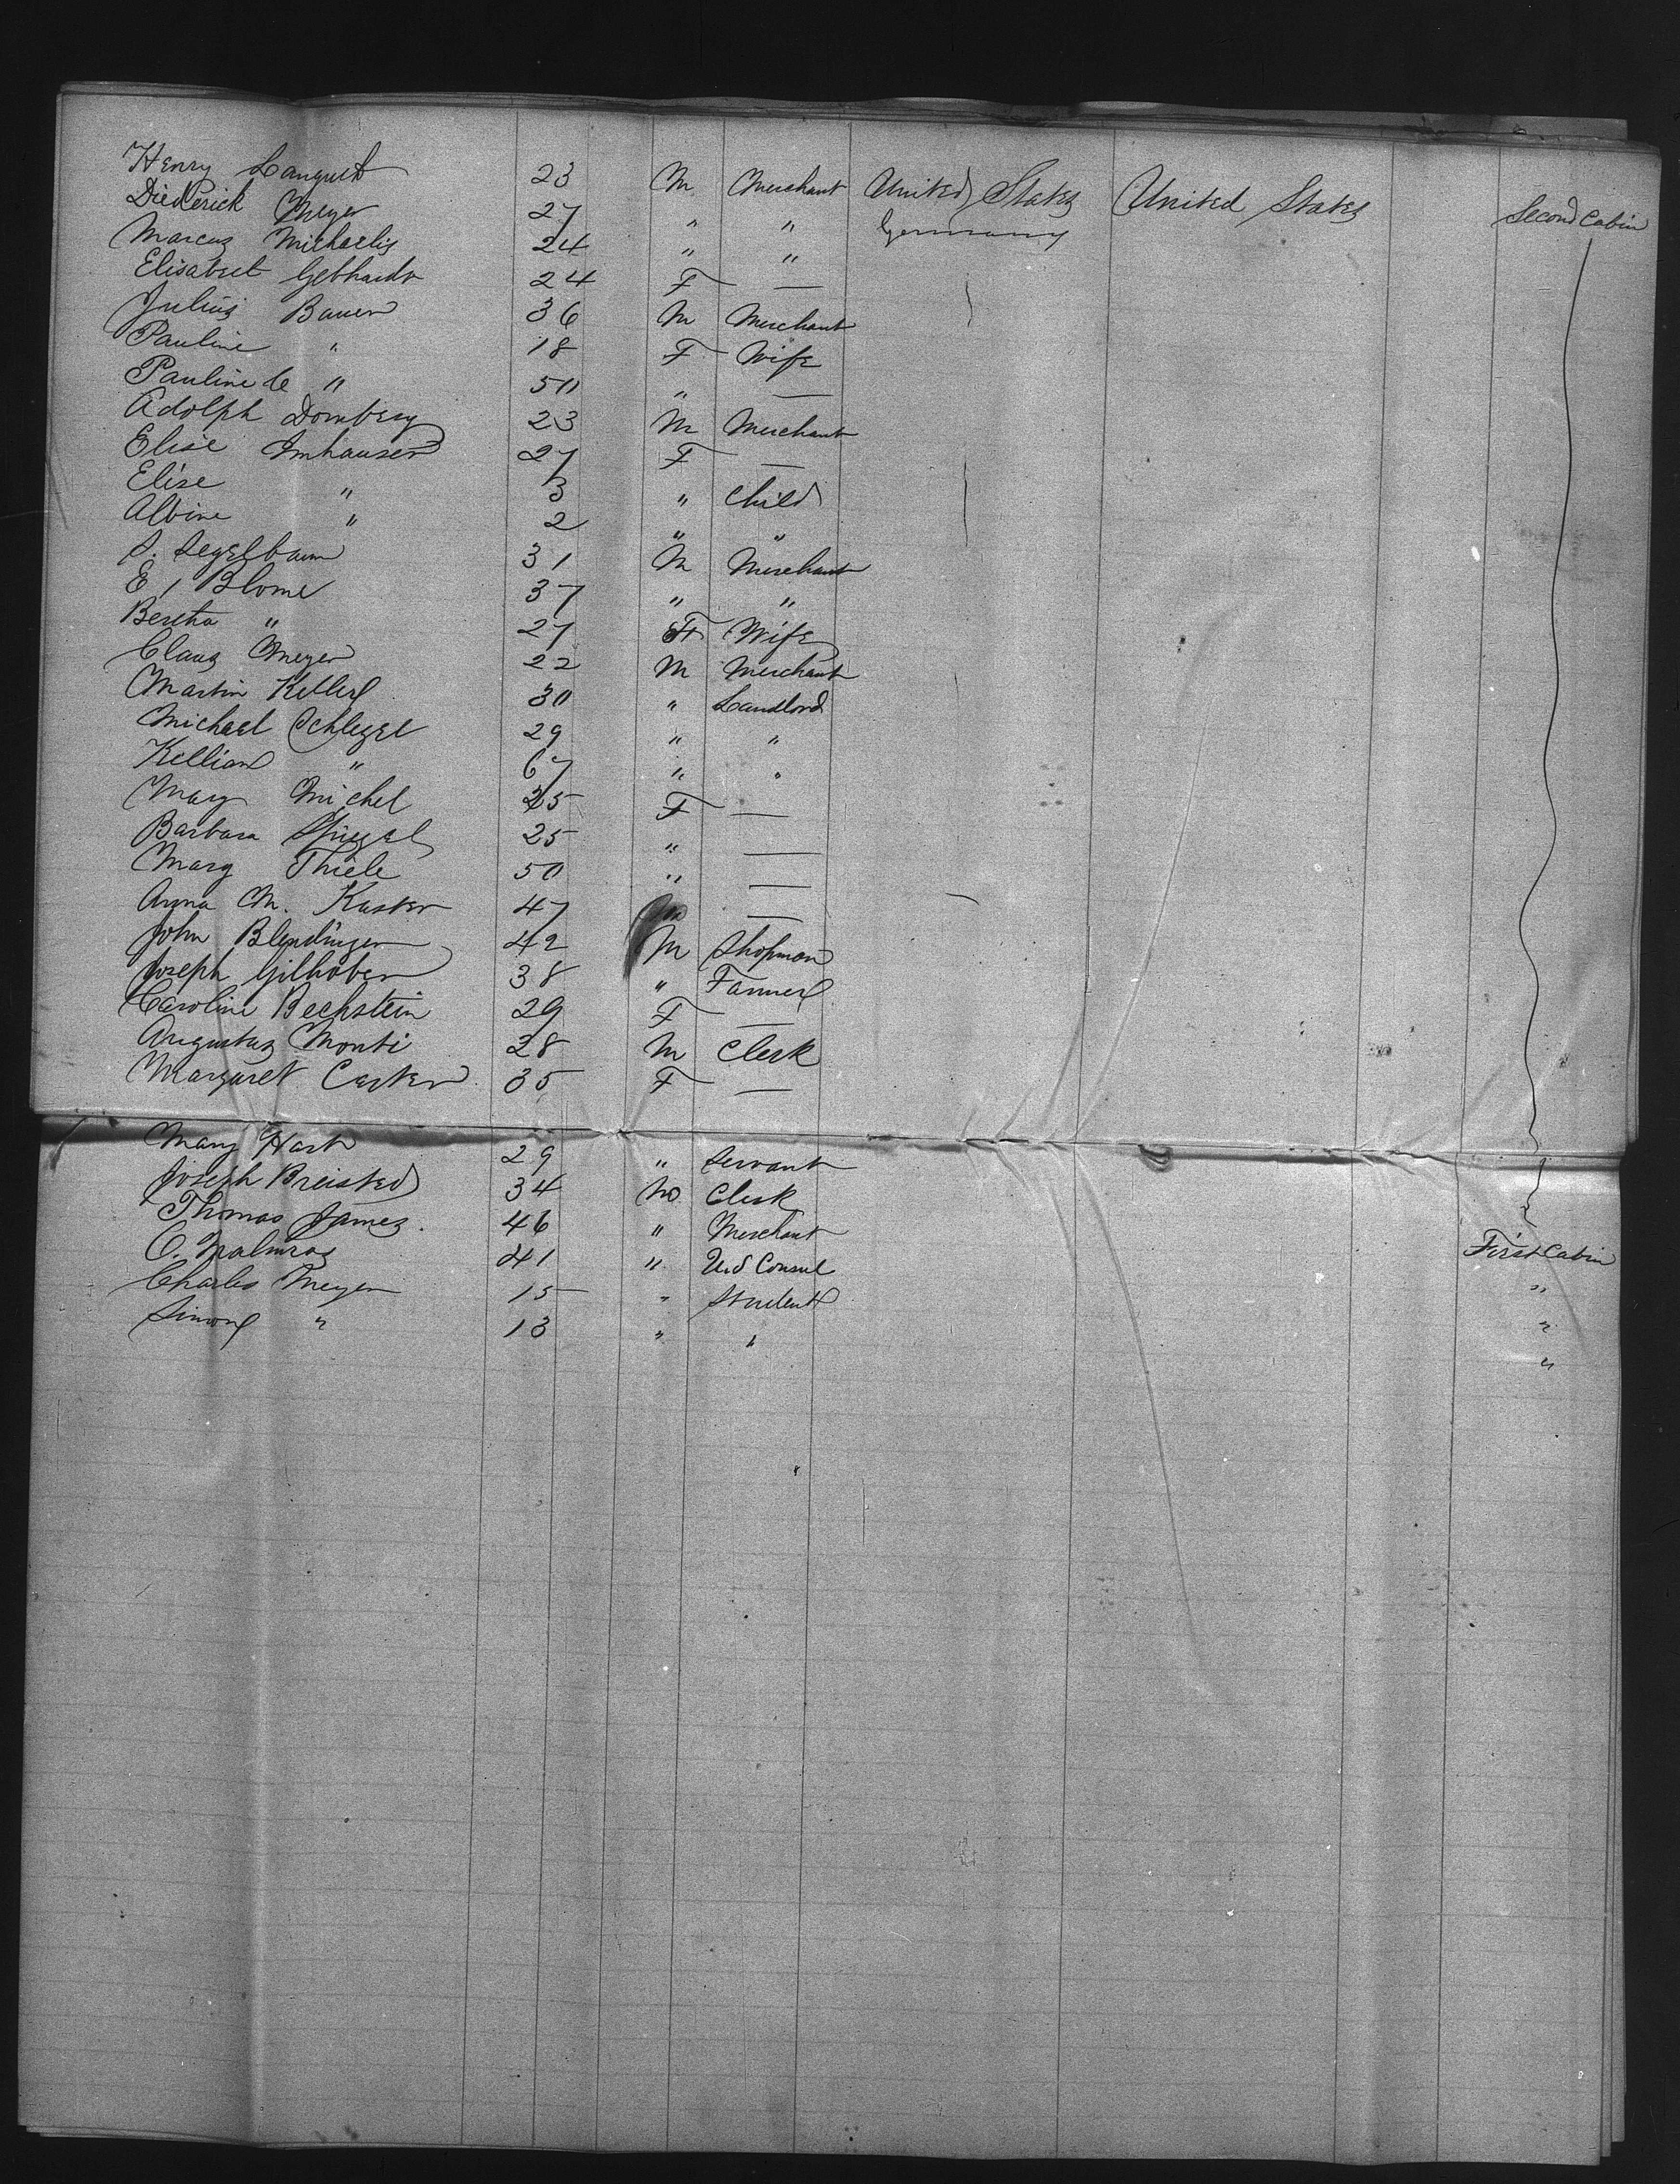 Henry Languth 23 M Merchant United States United States Second Cabin
Diederick Meyer 27 " " Germany
Marcus Michaelis 24 " "
Elisabeth Gebhardt 24 F —
Julius Bauer 36 M Merchant
Pauline " 18 F Wife
Pauline " 50 " —
Adolph Domberg 23 M Merchant
Elise Imhauser 27 F —
Elise " 3 " Child
Albine " 2 " "
S. Segelbaum 31 M Merchant
E, Blome 37 " "
Bertha " 27 F Wife
Claus Meyer 22 M Merchant
Martin Keller 30 " Landlord
Michael Schlegel 29 " "
Kellian " 67 " "
Mary Michel 25 F —
Barbara Spiegel 25 " —
Mary Thiele 50 " —
Anna M. Kuster 47 —
John Blendinger 42 M Shopman
Joseph Gilhober 38 " Farmer
Caroline Bechstein 29 F —
Augustus Monti 28 M Clerk
Margaret Carter 35 F —
Mary Hart 29 " Servant
Joseph Breisted 34 M Clerk
Thomas James. 46 " Merchant
O. Malmros 41 " U.S Consul First Cabin
Charles Meyer 15 " Student "
Simon " 13 " " "
"